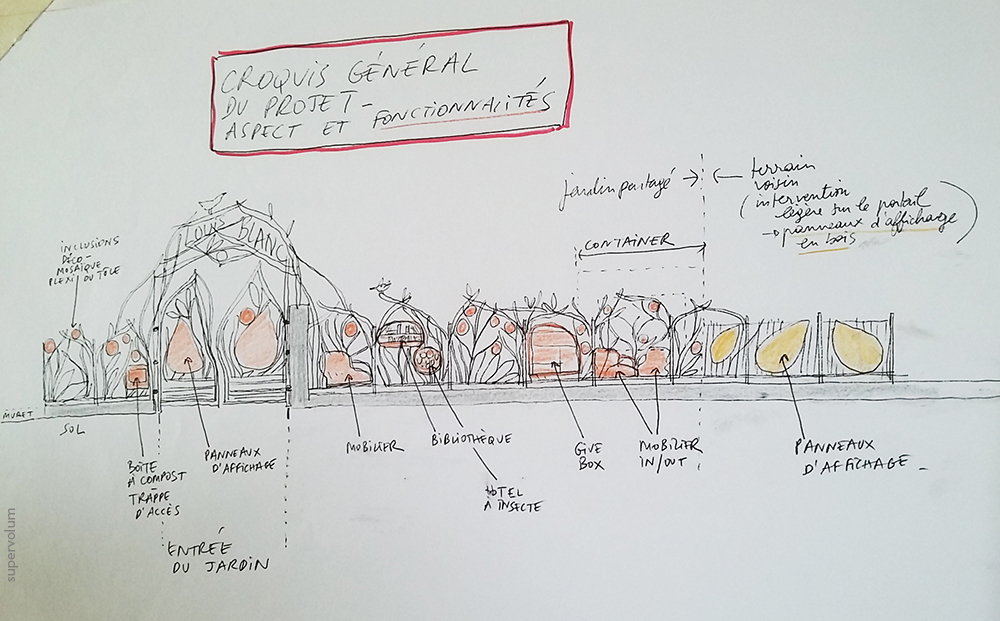 CROQUIS GÉNÉRAL
DU PROJET -
ASPECT ET FONCTIONNALITÉS
jardin partagé
terrain
voisin
(intervention
légère sur le portail
→ panneaux d'affichage
en bois)
CONTAINER
INCLUSIONS
DÉCO -
MOSAÏQUE
PLEXI OU TÔLE
LOUIS BLANC
MURET
SOL
BOÎTE
À COMPOST
TRAPPE
D'ACCÈS
PANNEAUX
D'AFFICHAGE
MOBILIER
BIBLIOTHÈQUE
HÔTEL
À INSECTE
GIVE
BOX
MOBILIER
IN/OUT
PANNEAUX
D'AFFICHAGE -
ENTRÉE
DU JARDIN
supervolum